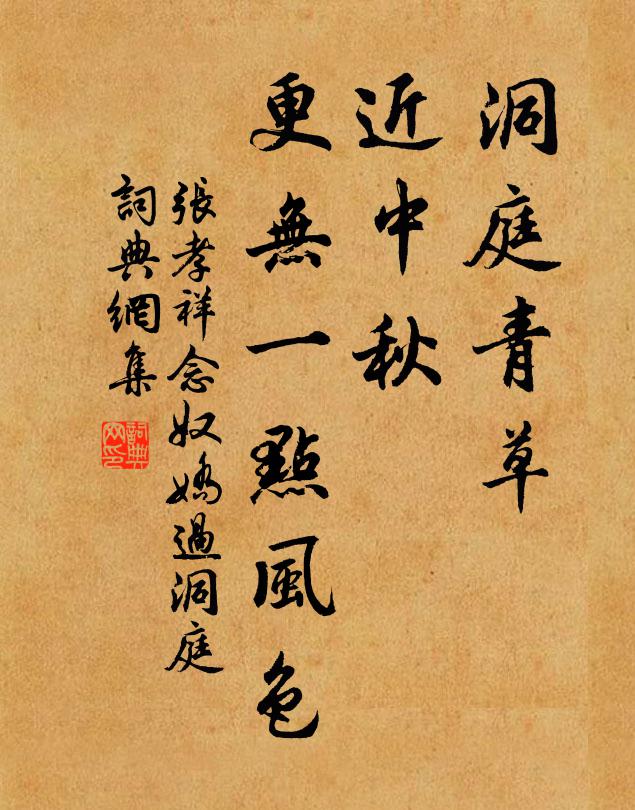 洞庭青草
近中秋
更無一點風色
張孝祥念奴嬌過洞庭
詞典網集
詞典
网印